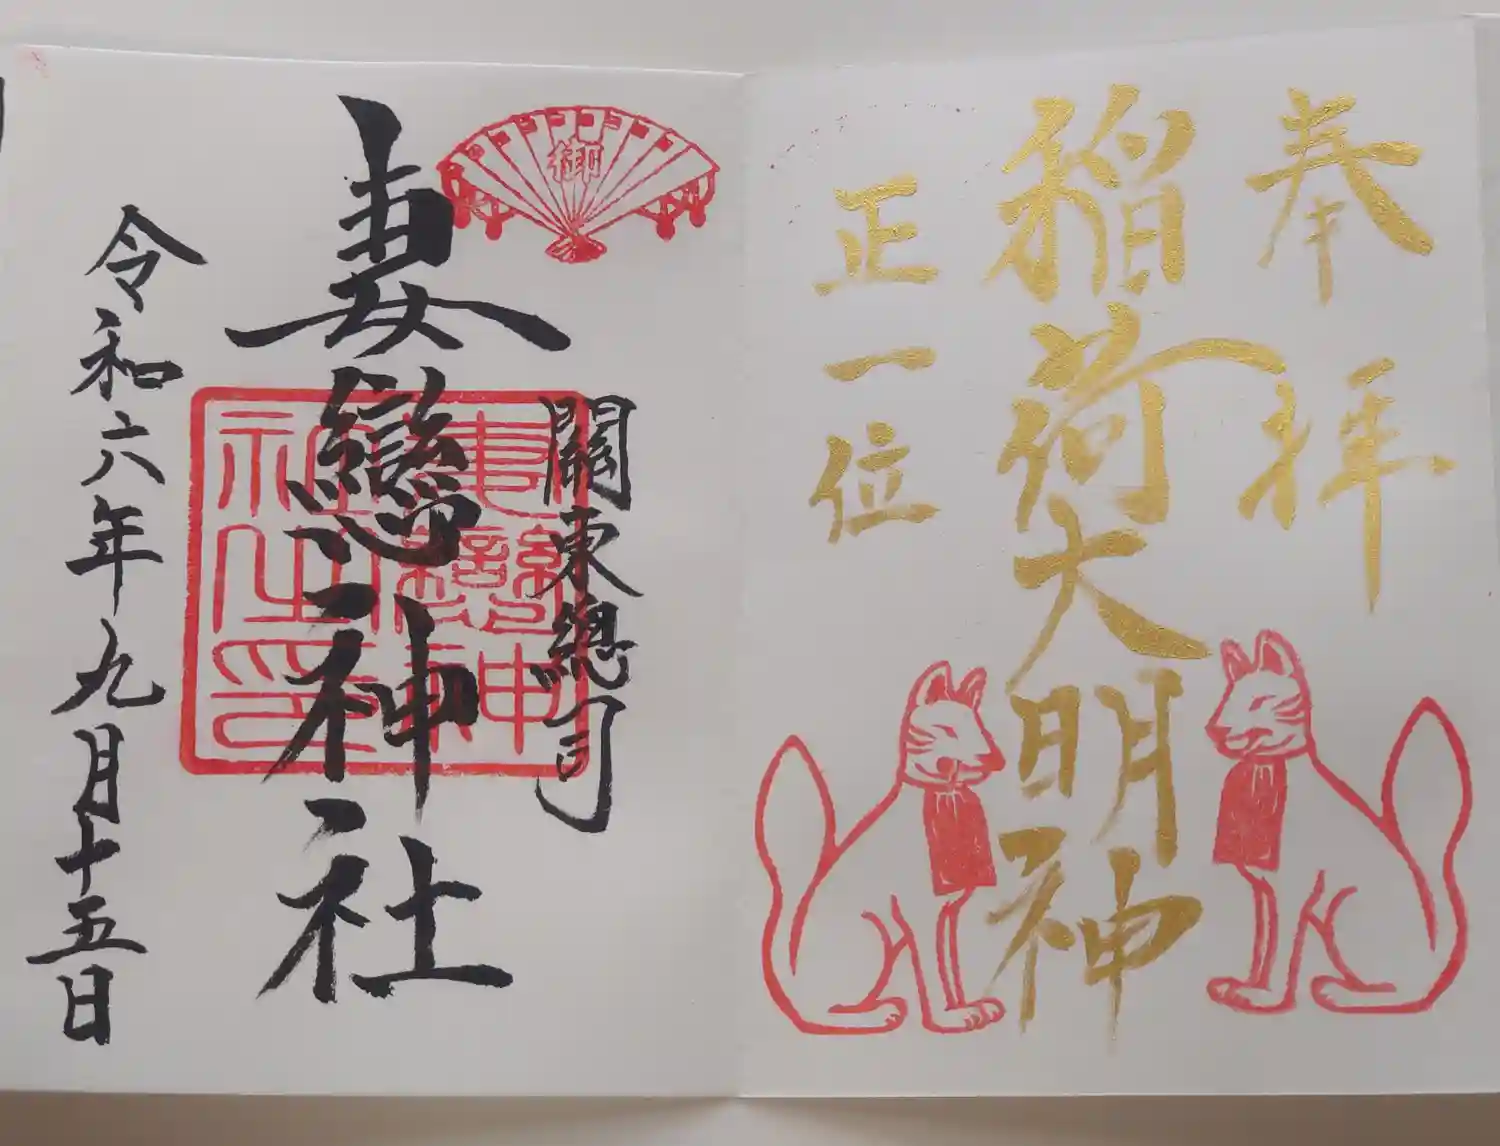 奉拝
稲荷大明神
正一位
御
關東總司
妻戀神社
妻戀神
社之印
令和六年九月十五日